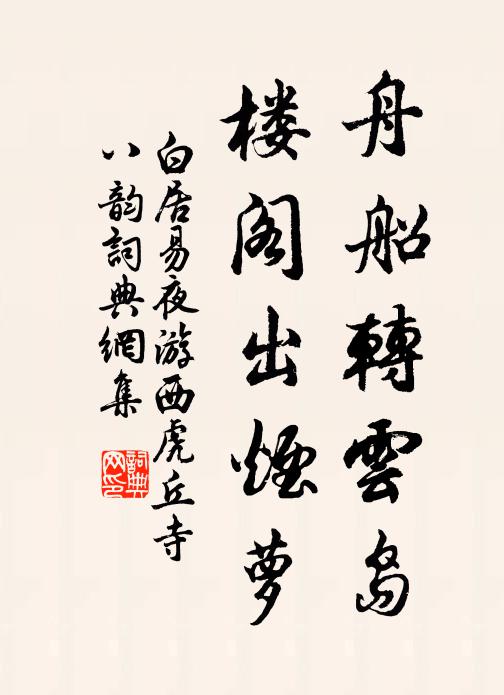 舟船轉雲島
楼阁出煙萝
白居易夜游西虎丘寺
八韵詞典網集
詞典
网印